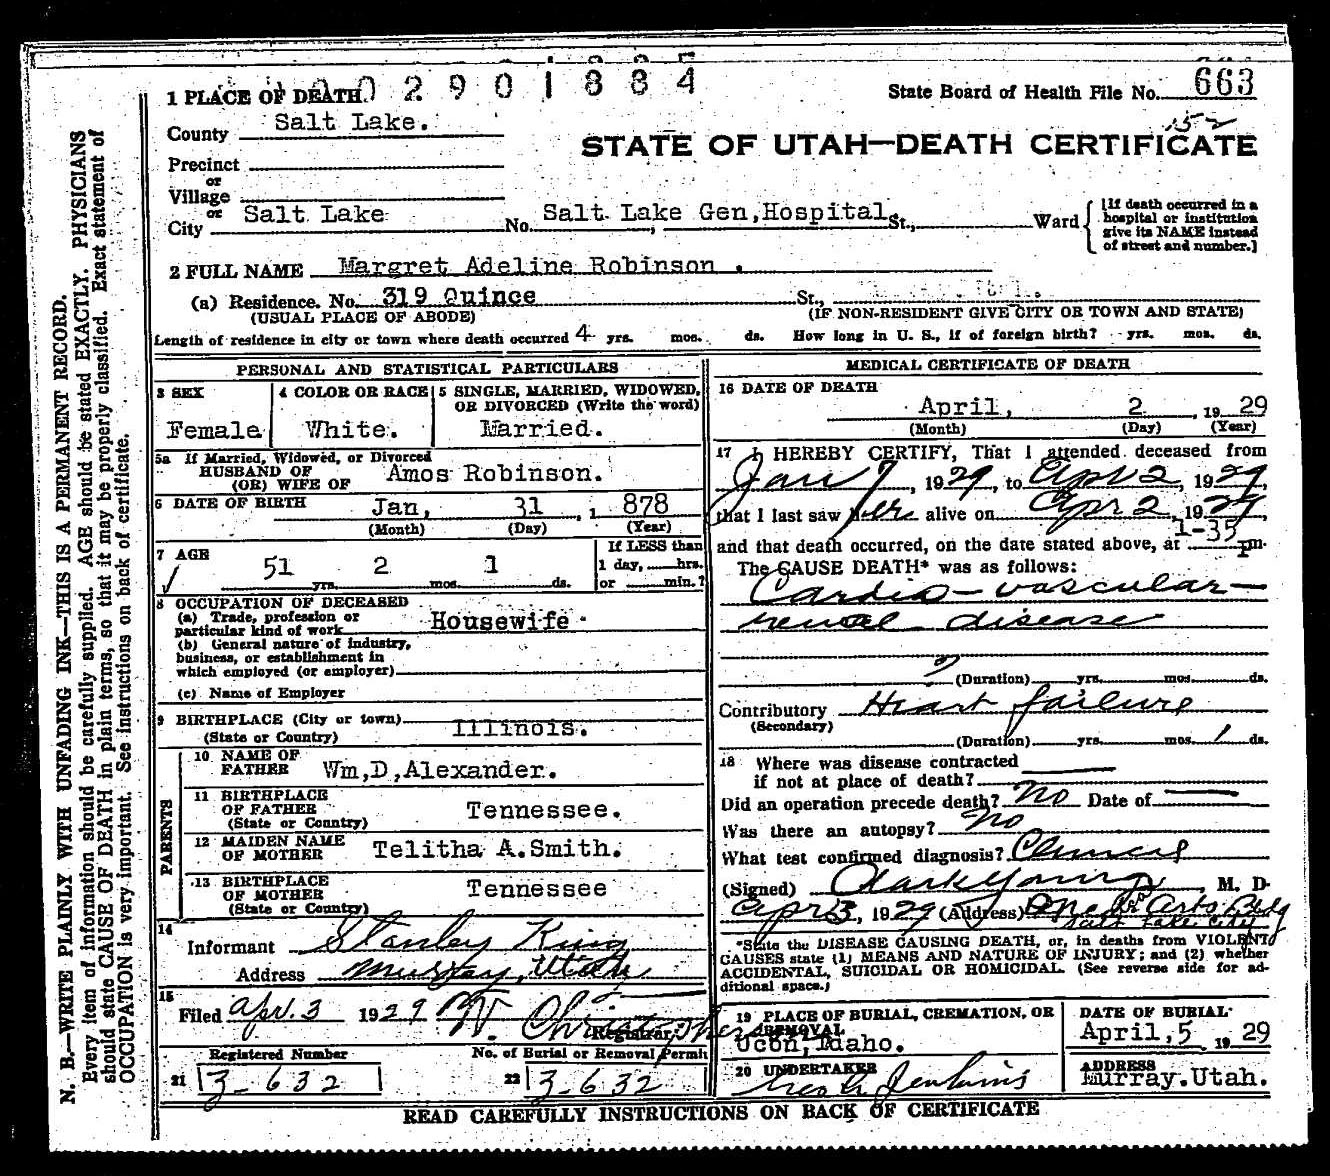 N. B.—WRITE PLAINLY WITH UNFADING INK—THIS IS A PERMANENT RECORD.
Every item of information should be carefully supplied. AGE should be stated EXACTLY. PHYSICIANS
should state CAUSE OF DEATH in plain terms, so that it may be properly classified. Exact statement of
OCCUPATION is very important. See instructions on back of certificate.
1 PLACE OF DEATH
02901884
State Board of Health File No. 663
County Salt Lake.
152
STATE OF UTAH—DEATH CERTIFICATE
Precinct
or
Village
or
City Salt Lake No. Salt Lake Gen,Hospital, St., Ward
[If death occurred in a
hospital or institution
give its NAME instead
of street and number.]
2 FULL NAME Margret Adeline Robinson .
(a) Residence. No. 319 Quince St.,
(USUAL PLACE OF ABODE) (IF NON-RESIDENT GIVE CITY OR TOWN AND STATE)
Length of residence in city or town where death occurred 4 yrs. mos. ds. How long in U. S., if of foreign birth? yrs. mos. ds.
PERSONAL AND STATISTICAL PARTICULARS
3 SEX
Female
4 COLOR OR RACE
White.
5 SINGLE, MARRIED, WIDOWED,
OR DIVORCED (Write the word)
Married.
5a If Married, Widowed, or Divorced
HUSBAND OF
(OR) WIFE OF Amos Robinson.
6 DATE OF BIRTH Jan, 31, 1878
(Month) (Day) (Year)
7 AGE
51 yrs. 2 mos. 1 ds.
If LESS than
1 day, hrs.
or min.?
8 OCCUPATION OF DECEASED
(a) Trade, profession or
particular kind of work Housewife
(b) General nature of industry,
business, or establishment in
which employed (or employer)
(c) Name of Employer
9 BIRTHPLACE (City or town)
(State or Country) Illinois.
PARENTS
10 NAME OF
FATHER Wm,D,Alexander.
11 BIRTHPLACE
OF FATHER
(State or Country) Tennessee.
12 MAIDEN NAME
OF MOTHER Telitha A.Smith.
13 BIRTHPLACE
OF MOTHER
(State or Country) Tennessee
14
Informant Stanley King
Address Murray, Utah
15
Filed Apr. 3 1929 W. Christophers
Registrar.
Registered Number
21 3-632
No. of Burial or Removal Permit
22 3-632
MEDICAL CERTIFICATE OF DEATH
16 DATE OF DEATH
April, 2, 1929
(Month) (Day) (Year)
17 I HEREBY CERTIFY, That I attended deceased from
Jan 7, 1929, to Apr 2, 1929,
that I last saw her alive on Apr 2, 1929,
and that death occurred, on the date stated above, at 1-35 Pm.
The CAUSE DEATH* was as follows:
Cardio-vascular-
renal disease
? (Duration) yrs. mos. ds.
Contributory Heart failure
(Secondary)
(Duration) yrs. mos. 1 ds.
18 Where was disease contracted
if not at place of death?
Did an operation precede death? No Date of
Was there an autopsy? No
What test confirmed diagnosis? Clinical
(Signed) Clark Young, M. D.
Apr 3, 1929 (Address) Med Arts Bldg
Salt Lake City
*State the DISEASE CAUSING DEATH, or, in deaths from VIOLENT
CAUSES state (1) MEANS AND NATURE OF INJURY; and (2) whether
ACCIDENTAL, SUICIDAL OR HOMICIDAL. (See reverse side for ad-
ditional space.)
19 PLACE OF BURIAL, CREMATION, OR
REMOVAL
Ucon, Idaho.
DATE OF BURIAL
April,5 1929
20 UNDERTAKER
Geo A Jenkins
ADDRESS
Murray.Utah.
READ CAREFULLY INSTRUCTIONS ON BACK OF CERTIFICATE